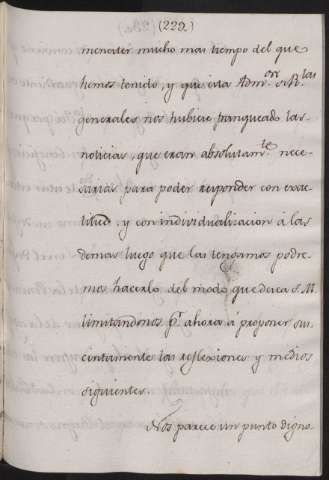 (229)
menester mucho mas tiempo del que
hemos tenido, y que esta Adm.on de R.tas
generales nos hubiese franqueado las
noticias, que eran absolutam.te nece-
sarias para poder responder con exac-
titud, y con individualizacion á las
demas luego que las tengamos podre-
mos hacerlo del modo que desea S. M.
limitandonos p.r ahora á proponer su-
cintamente las reflexiones y medios
siguientes.
Nos parece un punto digno